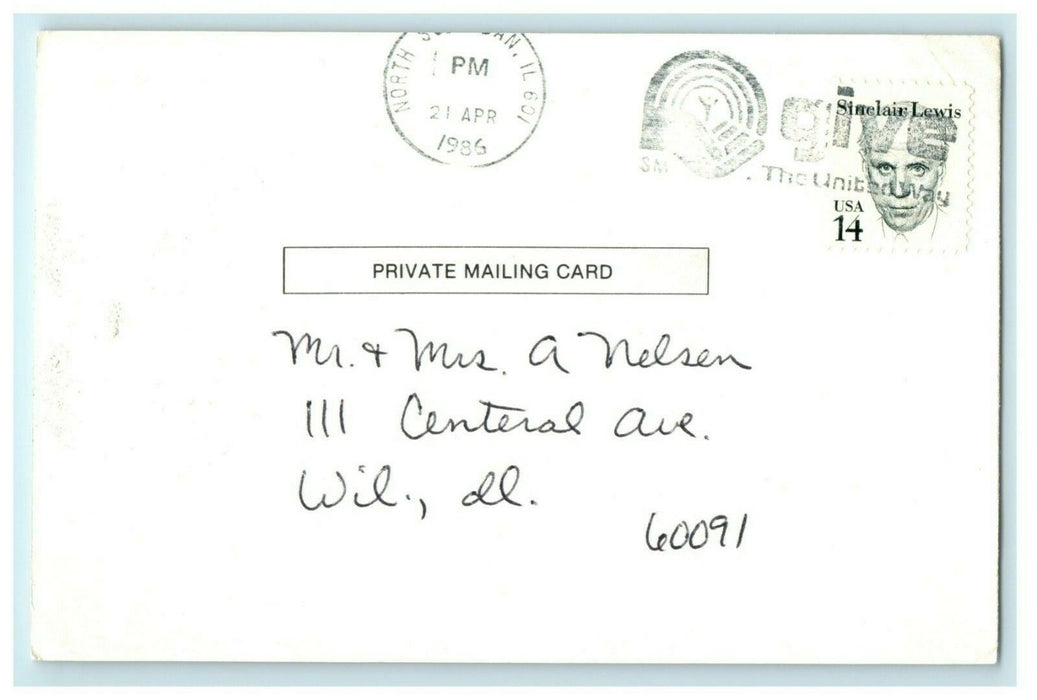 NORTH SUBURBAN, IL 601
PM
21 APR
1986
give
The United Way
Sinclair Lewis
USA
14
PRIVATE MAILING CARD
Mr. & Mrs. A Nelsen
111 Centeral Ave.
Wil., Il.
60091